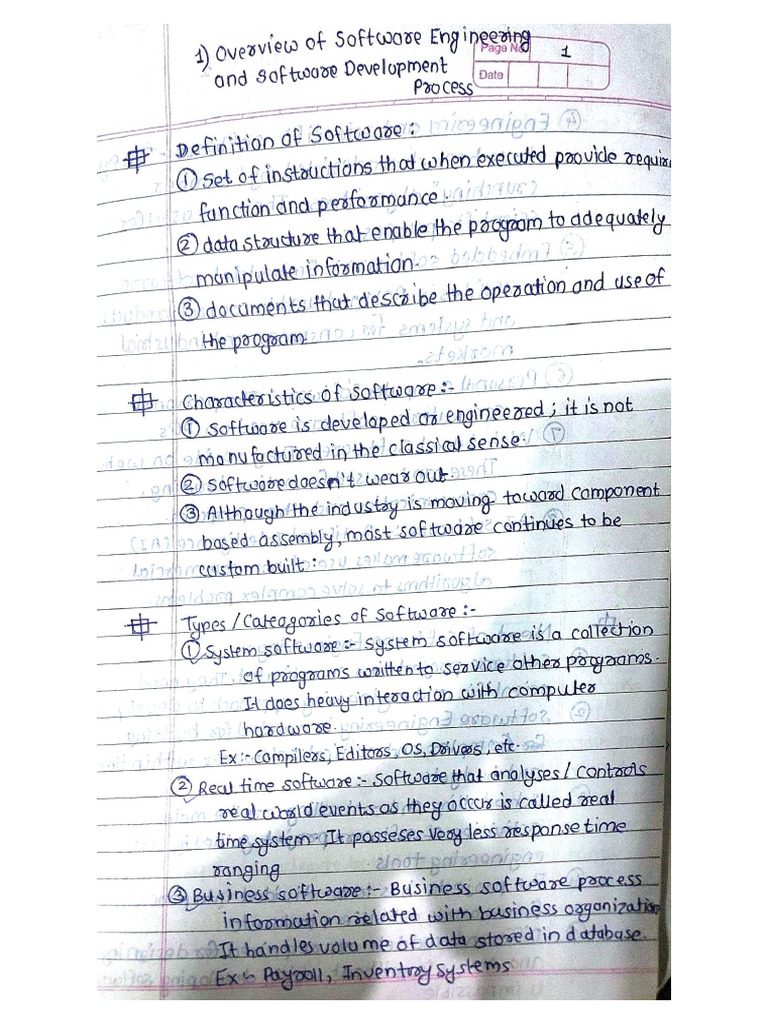 1) Overview of Software Engineering
and Software Development
Process
Page No. 1
Date
Definition of Software:
① Set of instructions that when executed provide requir
function and performance.
② data structure that enable the program to adequately
manipulate information.
③ documents that describe the operation and use of
the program
Characteristics of Software:-
① Software is developed or engineered; it is not
manufactured in the classical sense.
② Software doesn't wear out.
③ Although the industry is moving toward component
based assembly, most software continues to be
custom built:
Types/Cateogories of Software:-
① System software:- System software is a collection
of programs written to service other programs.
It does heavy interaction with computer
hardware.
Ex:- Compilers, Editors, OS, Drivers, etc.
② Real time software:- Software that analyses/controls
real world events as they occur is called real
time system. It posseses very less response time
ranging
③ Business software:- Business software process
information related with business organization
It handles volume of data stored in database.
Ex:- Payroll, Inventory Systems